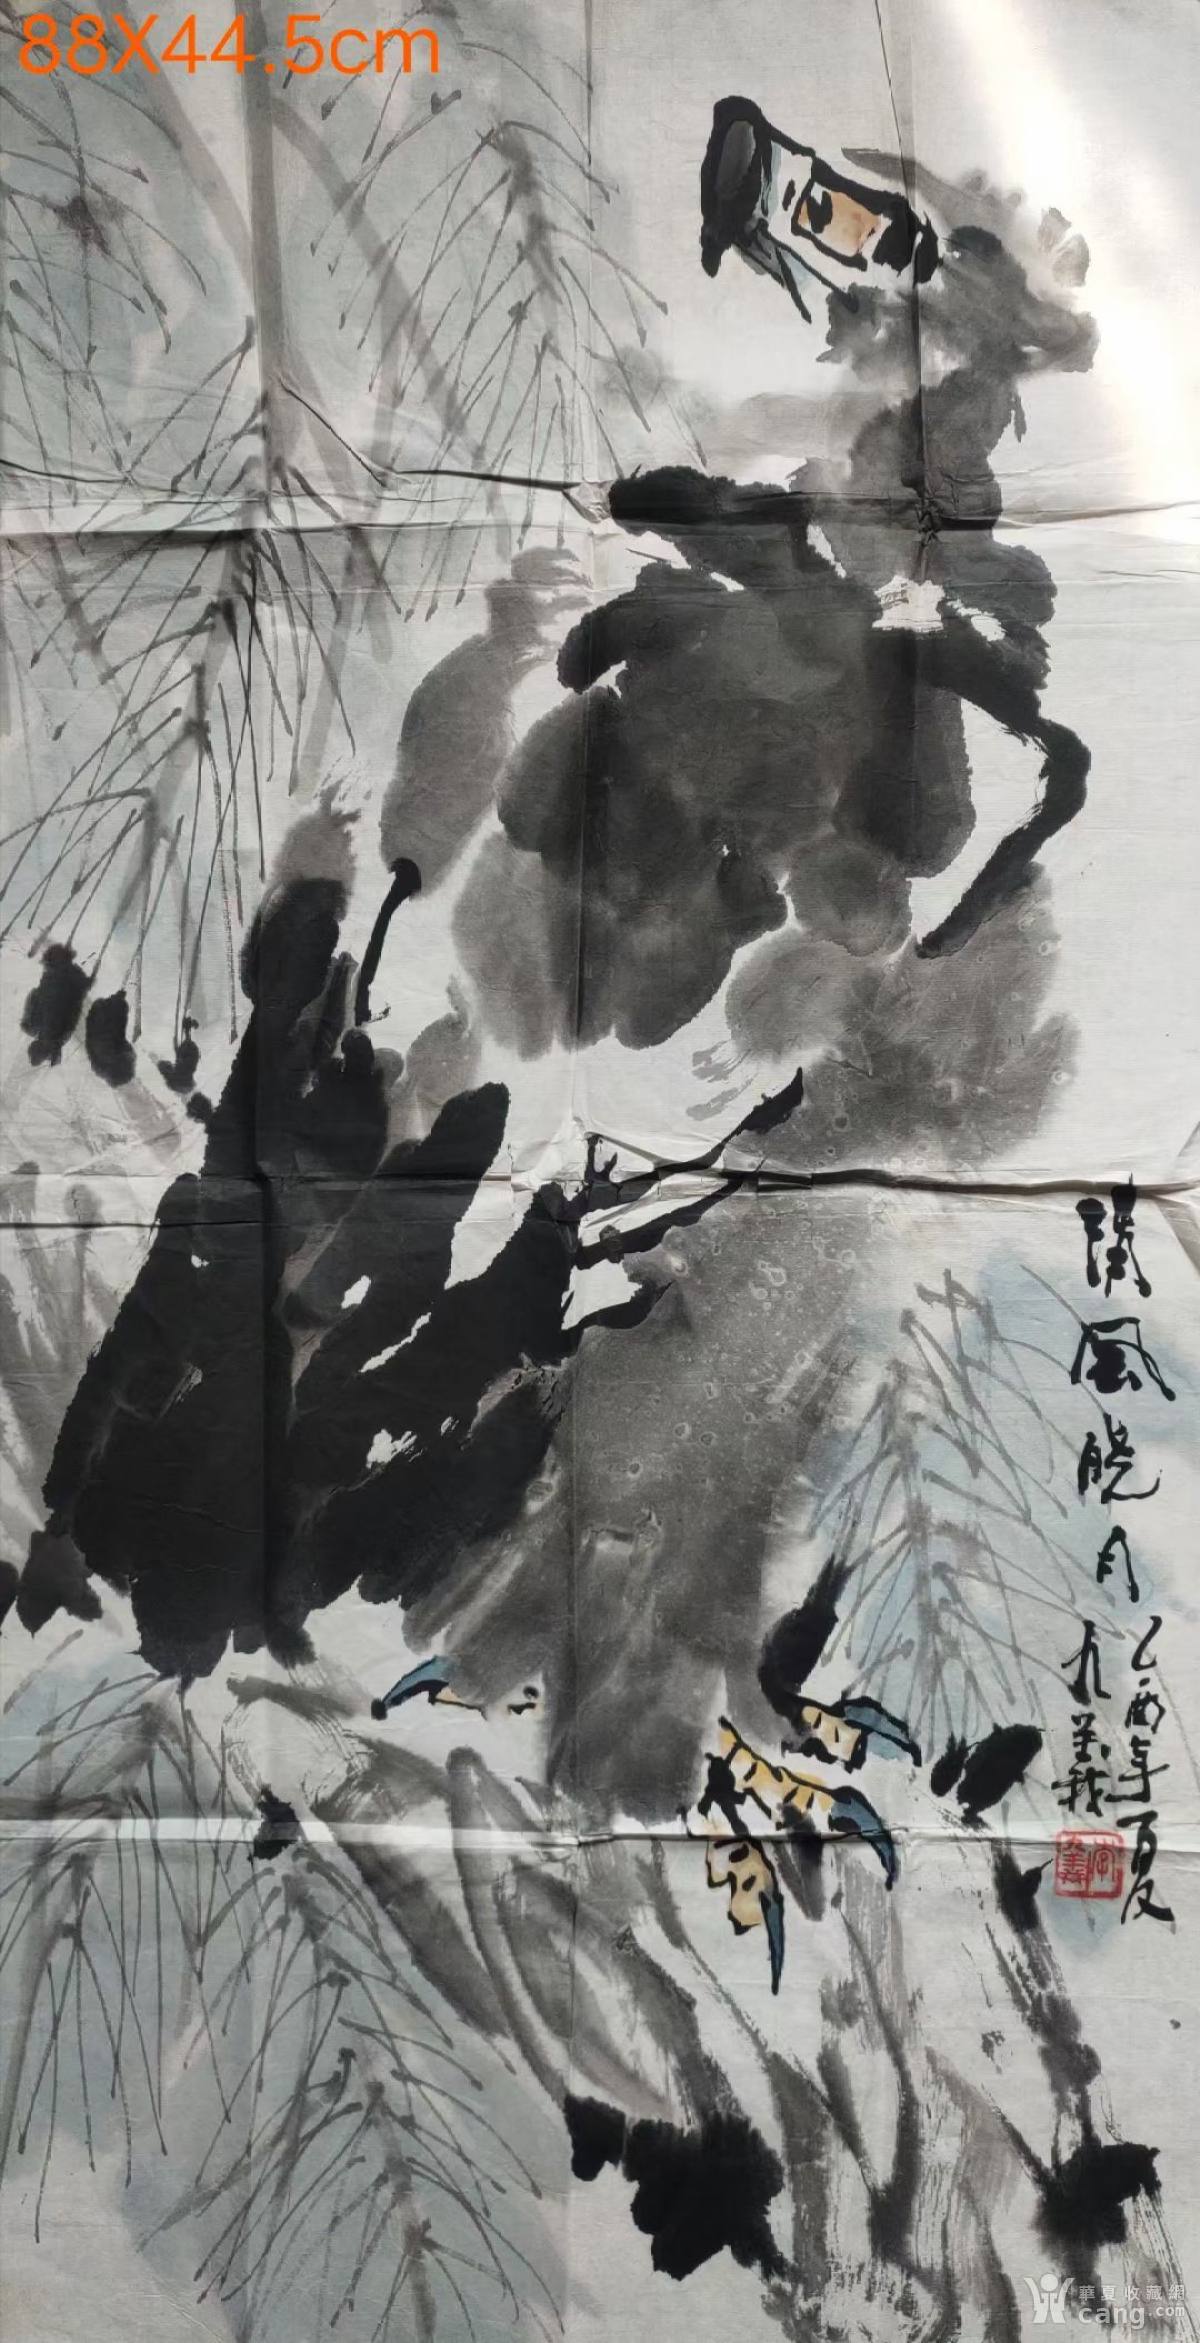 88X44.5cm
清風晓月
乙酉年夏
九義
華夏收藏網
cang.com